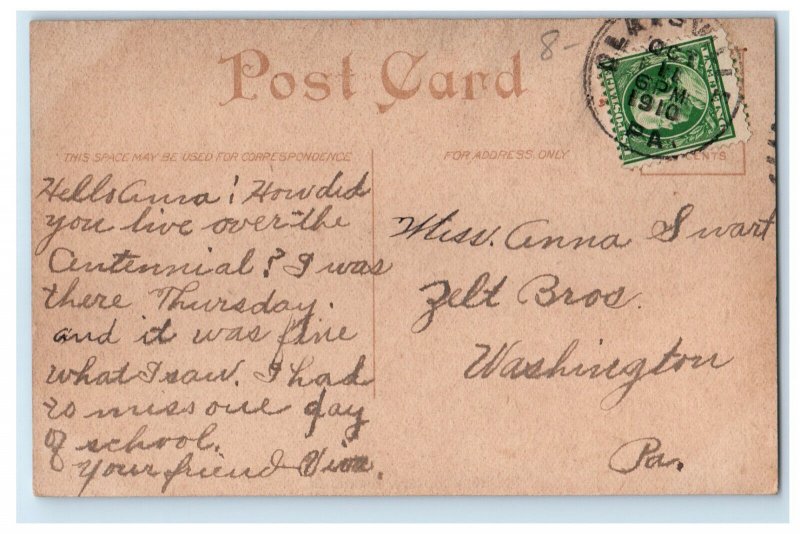 8-
Post Card
CLAYSVILLE
OCT
11
6 PM
1910
PA.
THIS SPACE MAY BE USED FOR CORRESPONDENCE
FOR ADDRESS ONLY
CENTS
Hello Anna! How did
you live over the
Centennial? I was
there Thursday.
and it was fine
what I saw. I had
to miss one day
of school.
Your friend
Miss. Anna Swart
Zelt Bros.
Washington
Pa.